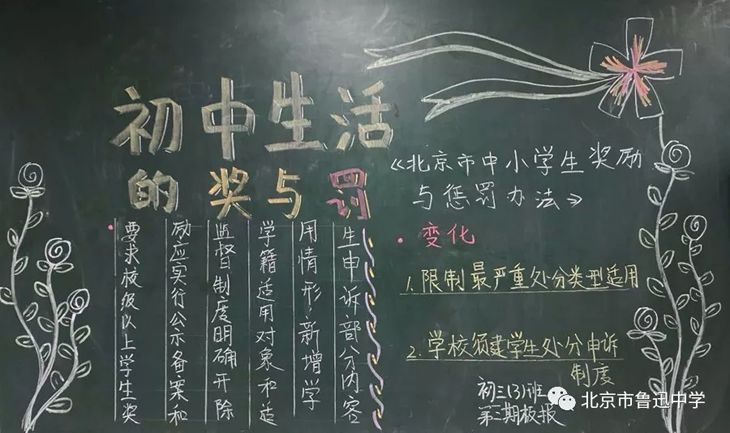 初中生活
的奖与罚
要求校级以上学生奖
励应实行公示备案和
监督制度明确开除
学籍适用对象和适
用情形,新增学
生申诉部分内容
《北京市中小学生奖励
与惩罚办法》
·变化
1.限制最严重处分类型适用
2.学校须建学生处分申诉
制度
初三(3)班
第三期板报
北京市鲁迅中学